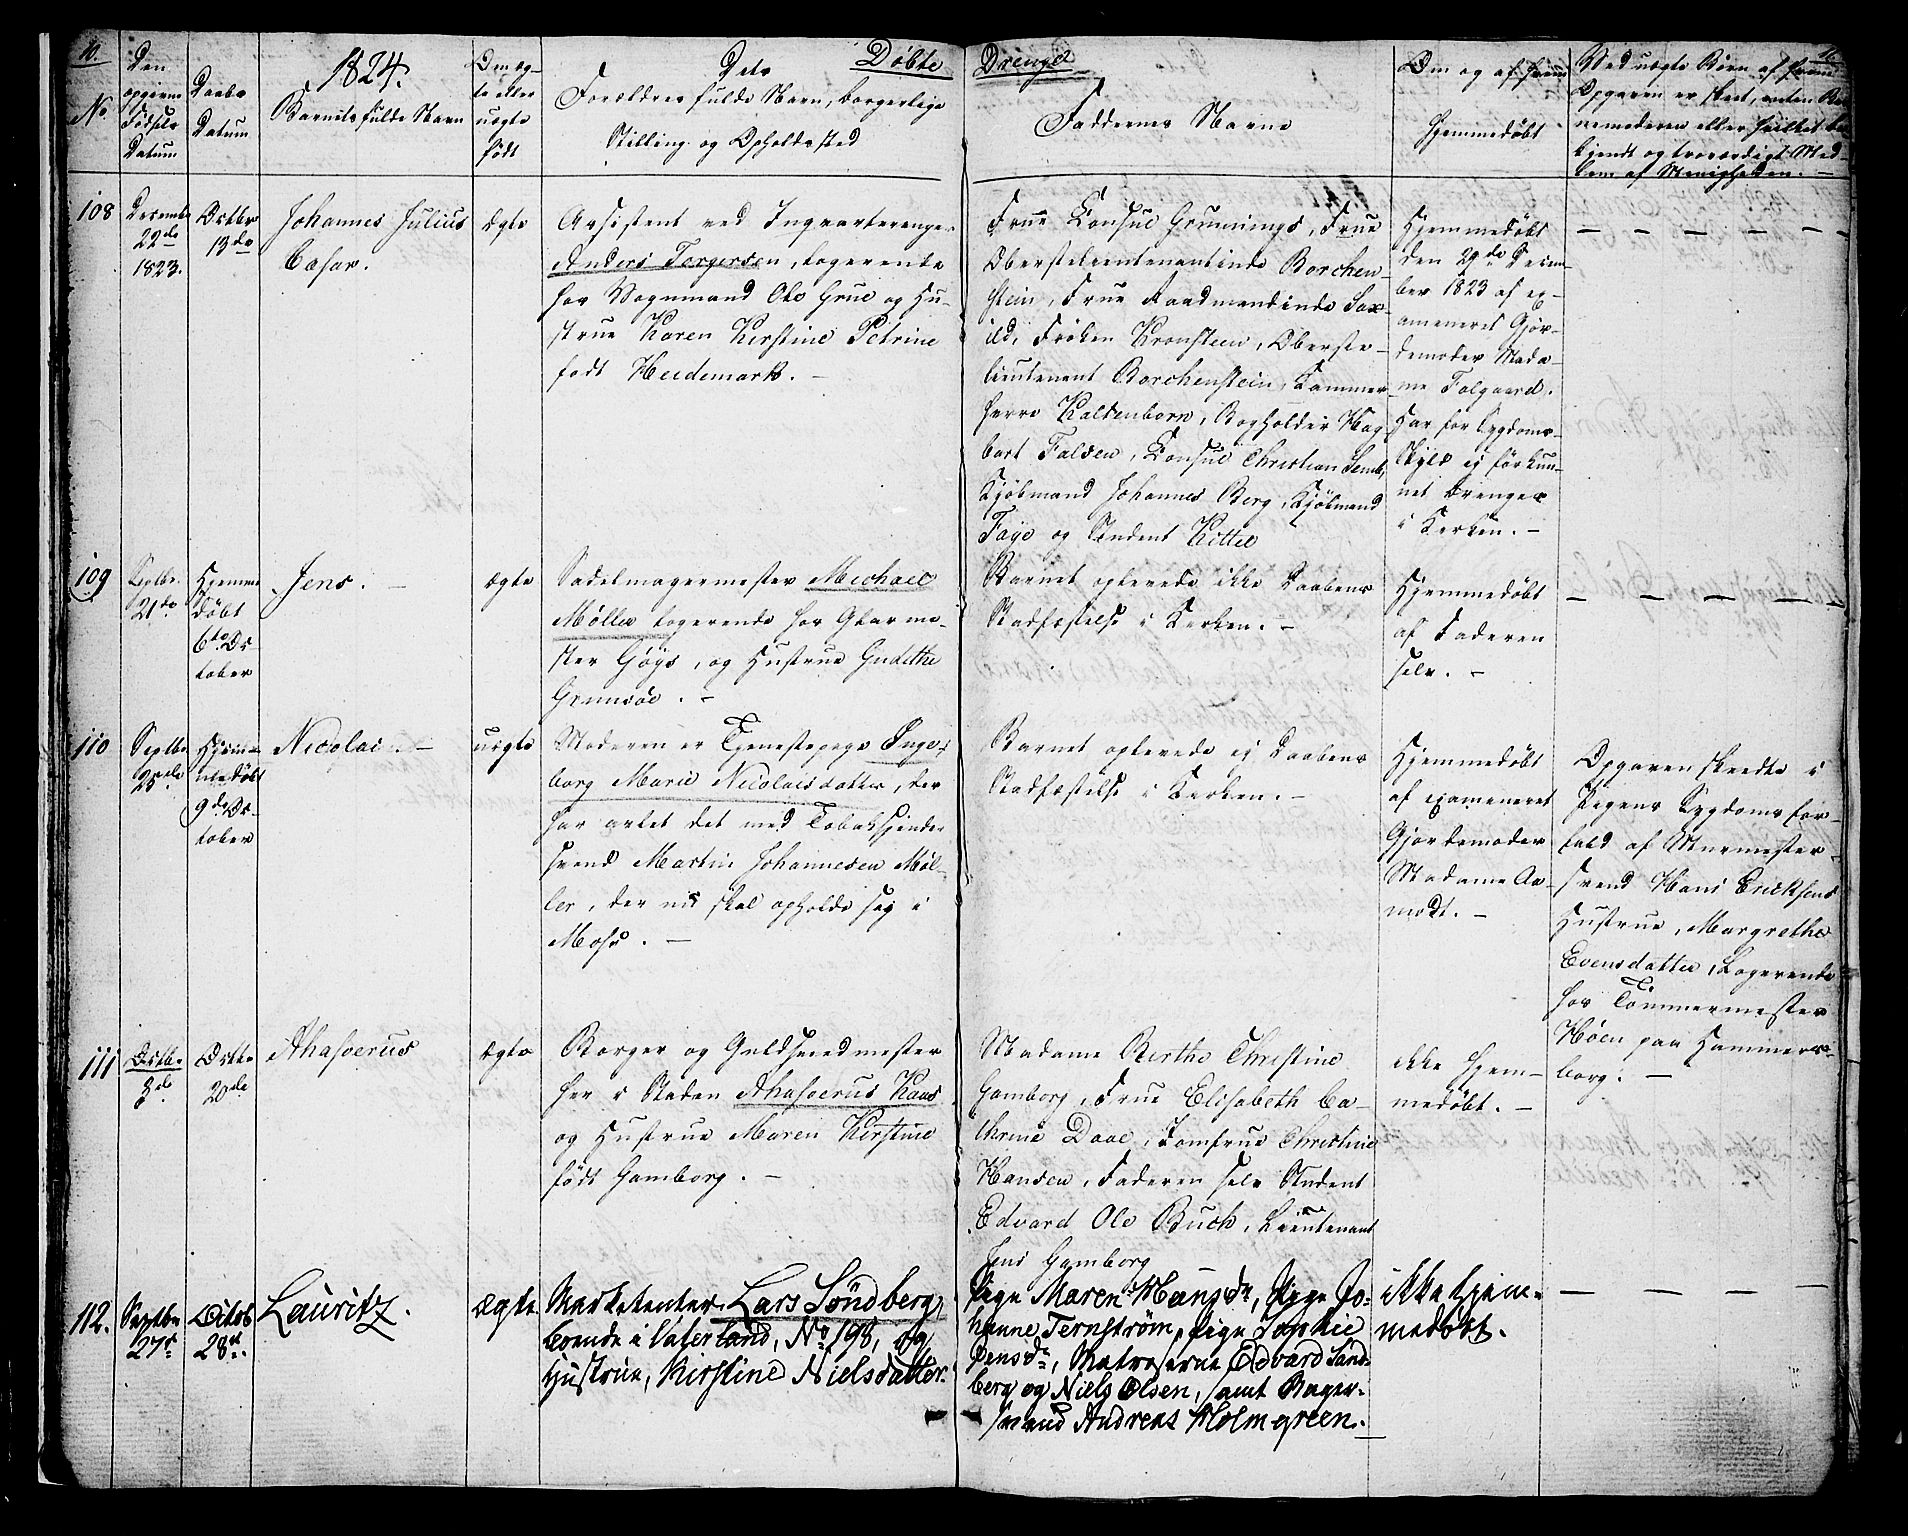 10.
Døbte
Drenge
1824.
No
Den
opgivne
Fødsels
Datum
Daabs
Datum
Barnets fulde Navn
Om æg-
te eller
uægte
født
Dets
Forældres fulde Navn, borgerlige
Stilling og Opholdssted
Faddernes Navne
Om og af hvem
hjemmedøbt
Ved uægte Børn af hvem
Opgaven er skeet, enten Bar-
nemoderen eller hvilket be-
kjendt og troværdigt Med-
lem af Menigheden. -
108
Decembr
22de
1823.
Octbr
13de
Johannes Julius
Cæsar.
ægte
Assistent ved Inqvarteringe-
Anders Torgersen, logerende
hos Vognmand Ole Grue og Hu-
strue Karen Kirstine Petrine
født Hedemark. -
Frue Consul Grunnings, Frue
Oberstelieutenantinde Borchen-
stein, Frue Raadmandinde Sax-
ild, Frøken Kronsteen, Oberste-
lieutenant Borchenstein, Kammer-
herre Kaltenborn, Bogholder Hag-
bart Falsen, Consul Christian Semb,
Kjøbmand Johannes Berg, Kjøbmand
Faye og Student Kittel
Hjemmedøbt
den 29de Decem-
ber 1823 af ex-
amineret Gjor-
demoder Mada-
me Folgaard.
Har for Sygdoms-
skyld ej før kun-
net bringes
i Kirken. -
109
Septbr.
21de
Hjemme
døbt
6te Oc-
tober
Jens. -
ægte
Sadelmagermester Michael
Møller logerende hos Glarme-
ster Gøÿs, og Hustrue Gudithe
Grumsøe. -
Barnet oplevede ikke Daabens
Stadfæstelse i Kirken. -
Hjemmedøbt
af Faderen
selv. -
110
Septbr
25de
Hjem-
medøbt
9de Oc-
tober
Nicolai. -
uægte
Moderen er Tjenestepige Inge-
borg Marie Nicolaisdatter, der
har avlet det med Tobakspinder
svend Martin Johannesen Møl-
ler, der nu skal opholde sig i
Moss. -
Barnet oplevede ej Daabens
Stadfæstelse i Kirken. -
Hjemmedøbt
af examineret
Gjordemoder
Madame Aa-
modt. -
Opgaven skeedte i
Pigens Sygdoms for-
fald af Murmester-
svend Hans Ericksens
Hustrue, Margrethe
Evensdatter, Logerende
hos Tømmermester
Høen paa Hammers-
borg. -
111
Octbr
3de
Octbr
20de
Ahasverus
ægte
Borger og Guldsmedmester
her i Staden Ahasverus Kaas
og Hustrue Maren Kirstine
født Gamborg. -
Madame Birthe Christine
Gamborg, Frue Elisabeth Ca-
thrine Daae, Jomfrue Christine
Hansen, Faderen selv Student
Edvard Ole Buch, Lieutenant
Jens Gamborg
ikke hjem-
medøbt. -
112.
Septbr
27de
Octob
28de.
Lauritz.
ægte.
Marketenter Lars Söndberg,
boende i Vaterland, No 198, og
Hustrue, Kirstine Nielsdatter.
Pige Maren Hansdr, Pige Jo-
hanne Ternstrøm, Pige Sophie
Jensdr, Matroserne Edvard Sönd-
berg og Niels Olsen, samt Bager-
svend Andreas Holmgreen.
ikke hjem-
medøbt.